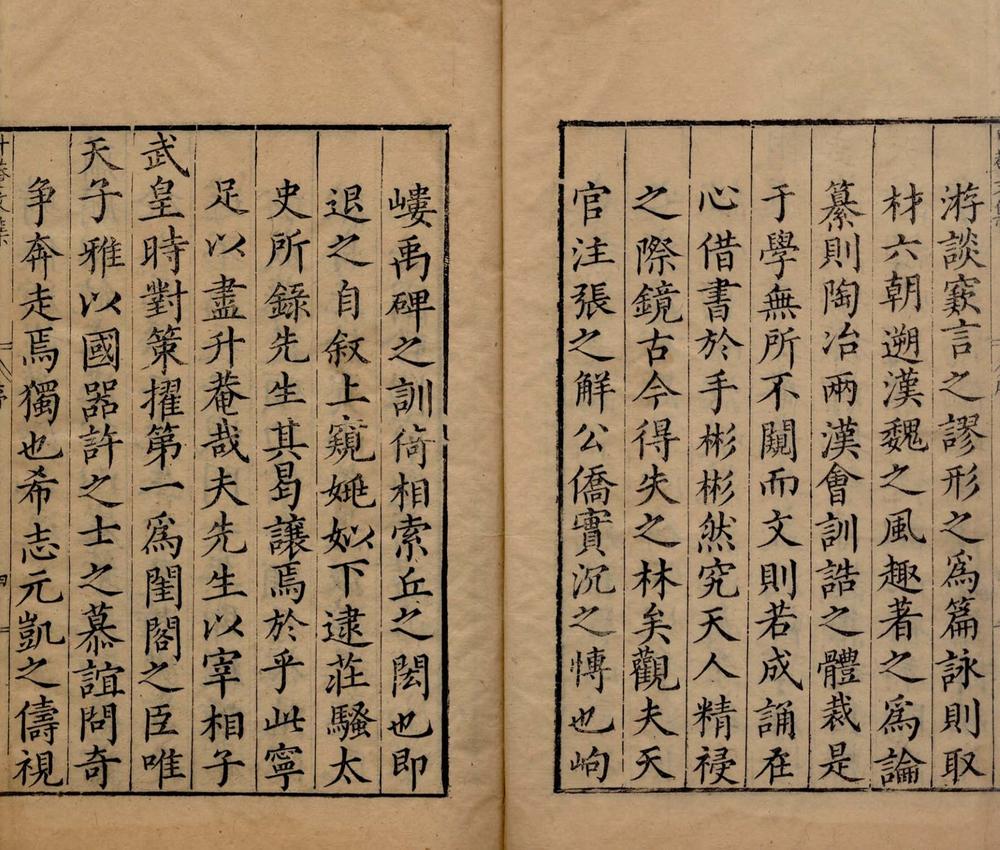 游談窾言之謬形之爲篇詠則取
材六朝遡漢魏之風趣著之爲論
纂則陶冶兩漢會訓誥之體裁是
于學無所不闚而文則若成誦在
心借書於手彬彬然究天人精祲
之際鏡古今得失之林矣觀夫天
官注張之解公僑實沉之慱也岣
嶁禹碑之訓倚相索丘之閎也即
退之自叙上窺姚姒下逮莊騷太
史所錄先生其曷讓焉於乎此寧
足以盡升菴哉夫先生以宰相子
武皇時對策擢第一爲閨閤之臣唯
天子雅以國器許之士之慕誼問奇
争奔走焉獨也希志元凱之儔視
升菴文集
序
四